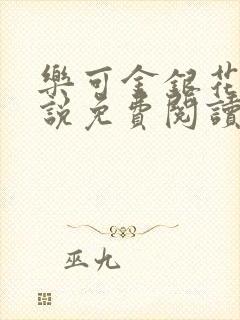 樂可金銀花
說免費閱讀
巫九